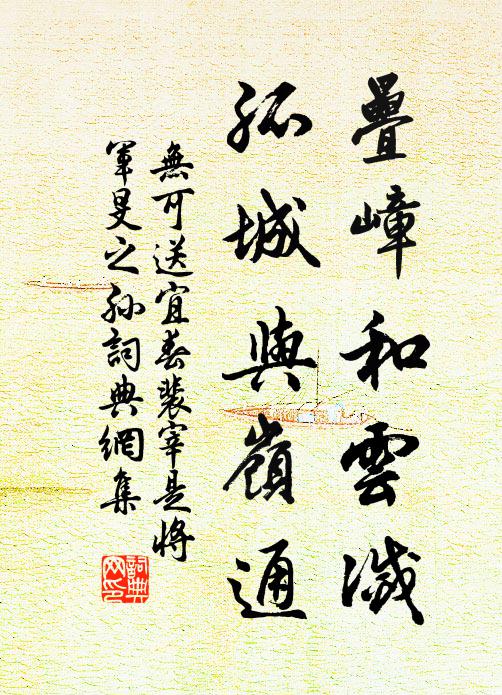 疊嶂和雲滅
孤城與嶺通
無可送宜春裴宰是將
軍旻之孫詞典網集
詞典
网印